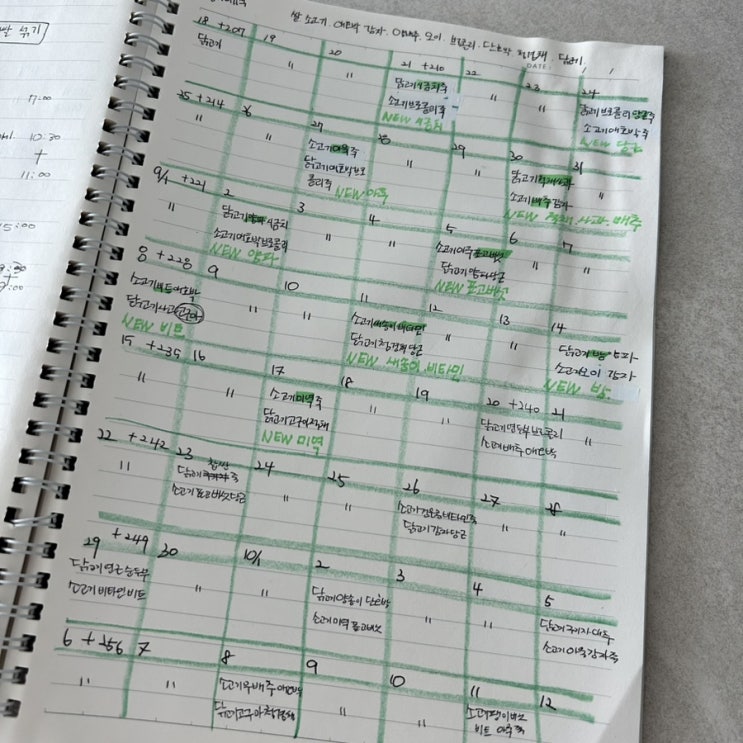 쌀 소고기. 애호박 감자. 양배추. 오이. 브로콜리. 단호박. 청경채. 닭고기.
DATE : / /
18 +207
닭고기
19
"
20
"
21 +210
닭고기 시금치죽
소고기 브로콜리죽
NEW 시금치
22
"
23
"
24
닭고기 브로콜리 당근죽
소고기 애호박죽
NEW 당근
25 +214
"
26
"
27
소고기 아욱죽
닭고기 애호박 브로
콜리죽
NEW 아욱
28
"
29
"
30
소고기 배추 감자
NEW 찰리. 사과. 배추
31
"
9/1 +221
"
2
닭고기 양파 시금치
소고기 애호박 브로콜리
NEW 양파
3
"
4
"
5
소고기 아욱 표고버섯
닭고기 양파 당근
NEW 표고버섯
6
"
7
"
8 +228
소고기 비트 애호박
닭고기 사과 고구마
NEW 비트
9
"
10
"
11
소고기 새송이 비타민
닭고기 청경채 당근
NEW 새송이. 비타민
12
"
13
"
14
닭고기 밤 양파
소고기 오이 감자
NEW 밤.
15 +235
"
16
"
17
소고기 미역죽
닭고기 고구마
NEW 미역
18
"
19
"
20 +240
닭고기 연두부 브로콜리
소고기 배추 애호박
21
"
22 +242
"
23
찹쌀
닭고기
소고기 표고버섯 당근
24
"
25
"
26
소고기 비타민죽
닭고기 감자 당근
27
"
28
"
29 +249
닭고기 연근 순두부
소고기 비타민 비트
30
"
10/1
"
2
닭고기 양송이 단호박
소고기 미역 표고버섯
3
"
4
"
5
닭고기 구기자 대추
소고기 아욱 감자죽
6 + 256
"
7
"
8
소고기 무 배추 애호박
닭고기 고구마 청경채
9
"
10
"
11
소고기 팽이버섯
비트 아욱죽
12
17:00
10:30
+
11:00
15:00